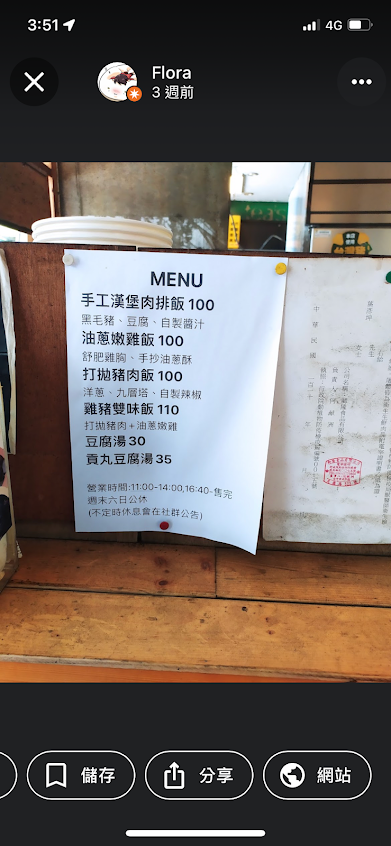 3:51
4G
Flora
3 週前
MENU
手工漢堡肉排飯 100
黑毛豬、豆腐、自製醬汁
油蔥嫩雞飯 100
舒肥雞胸、手抄油蔥酥
打拋豬肉飯 100
洋蔥、九層塔、自製辣椒
雞豬雙味飯 110
打拋豬肉+油蔥嫩雞
豆腐湯 30
貢丸豆腐湯 35
營業時間:11:00-14:00,16:40-售完
週末六日公休
(不定時休息會在社群公告)
中華民國
儲存
分享
網站